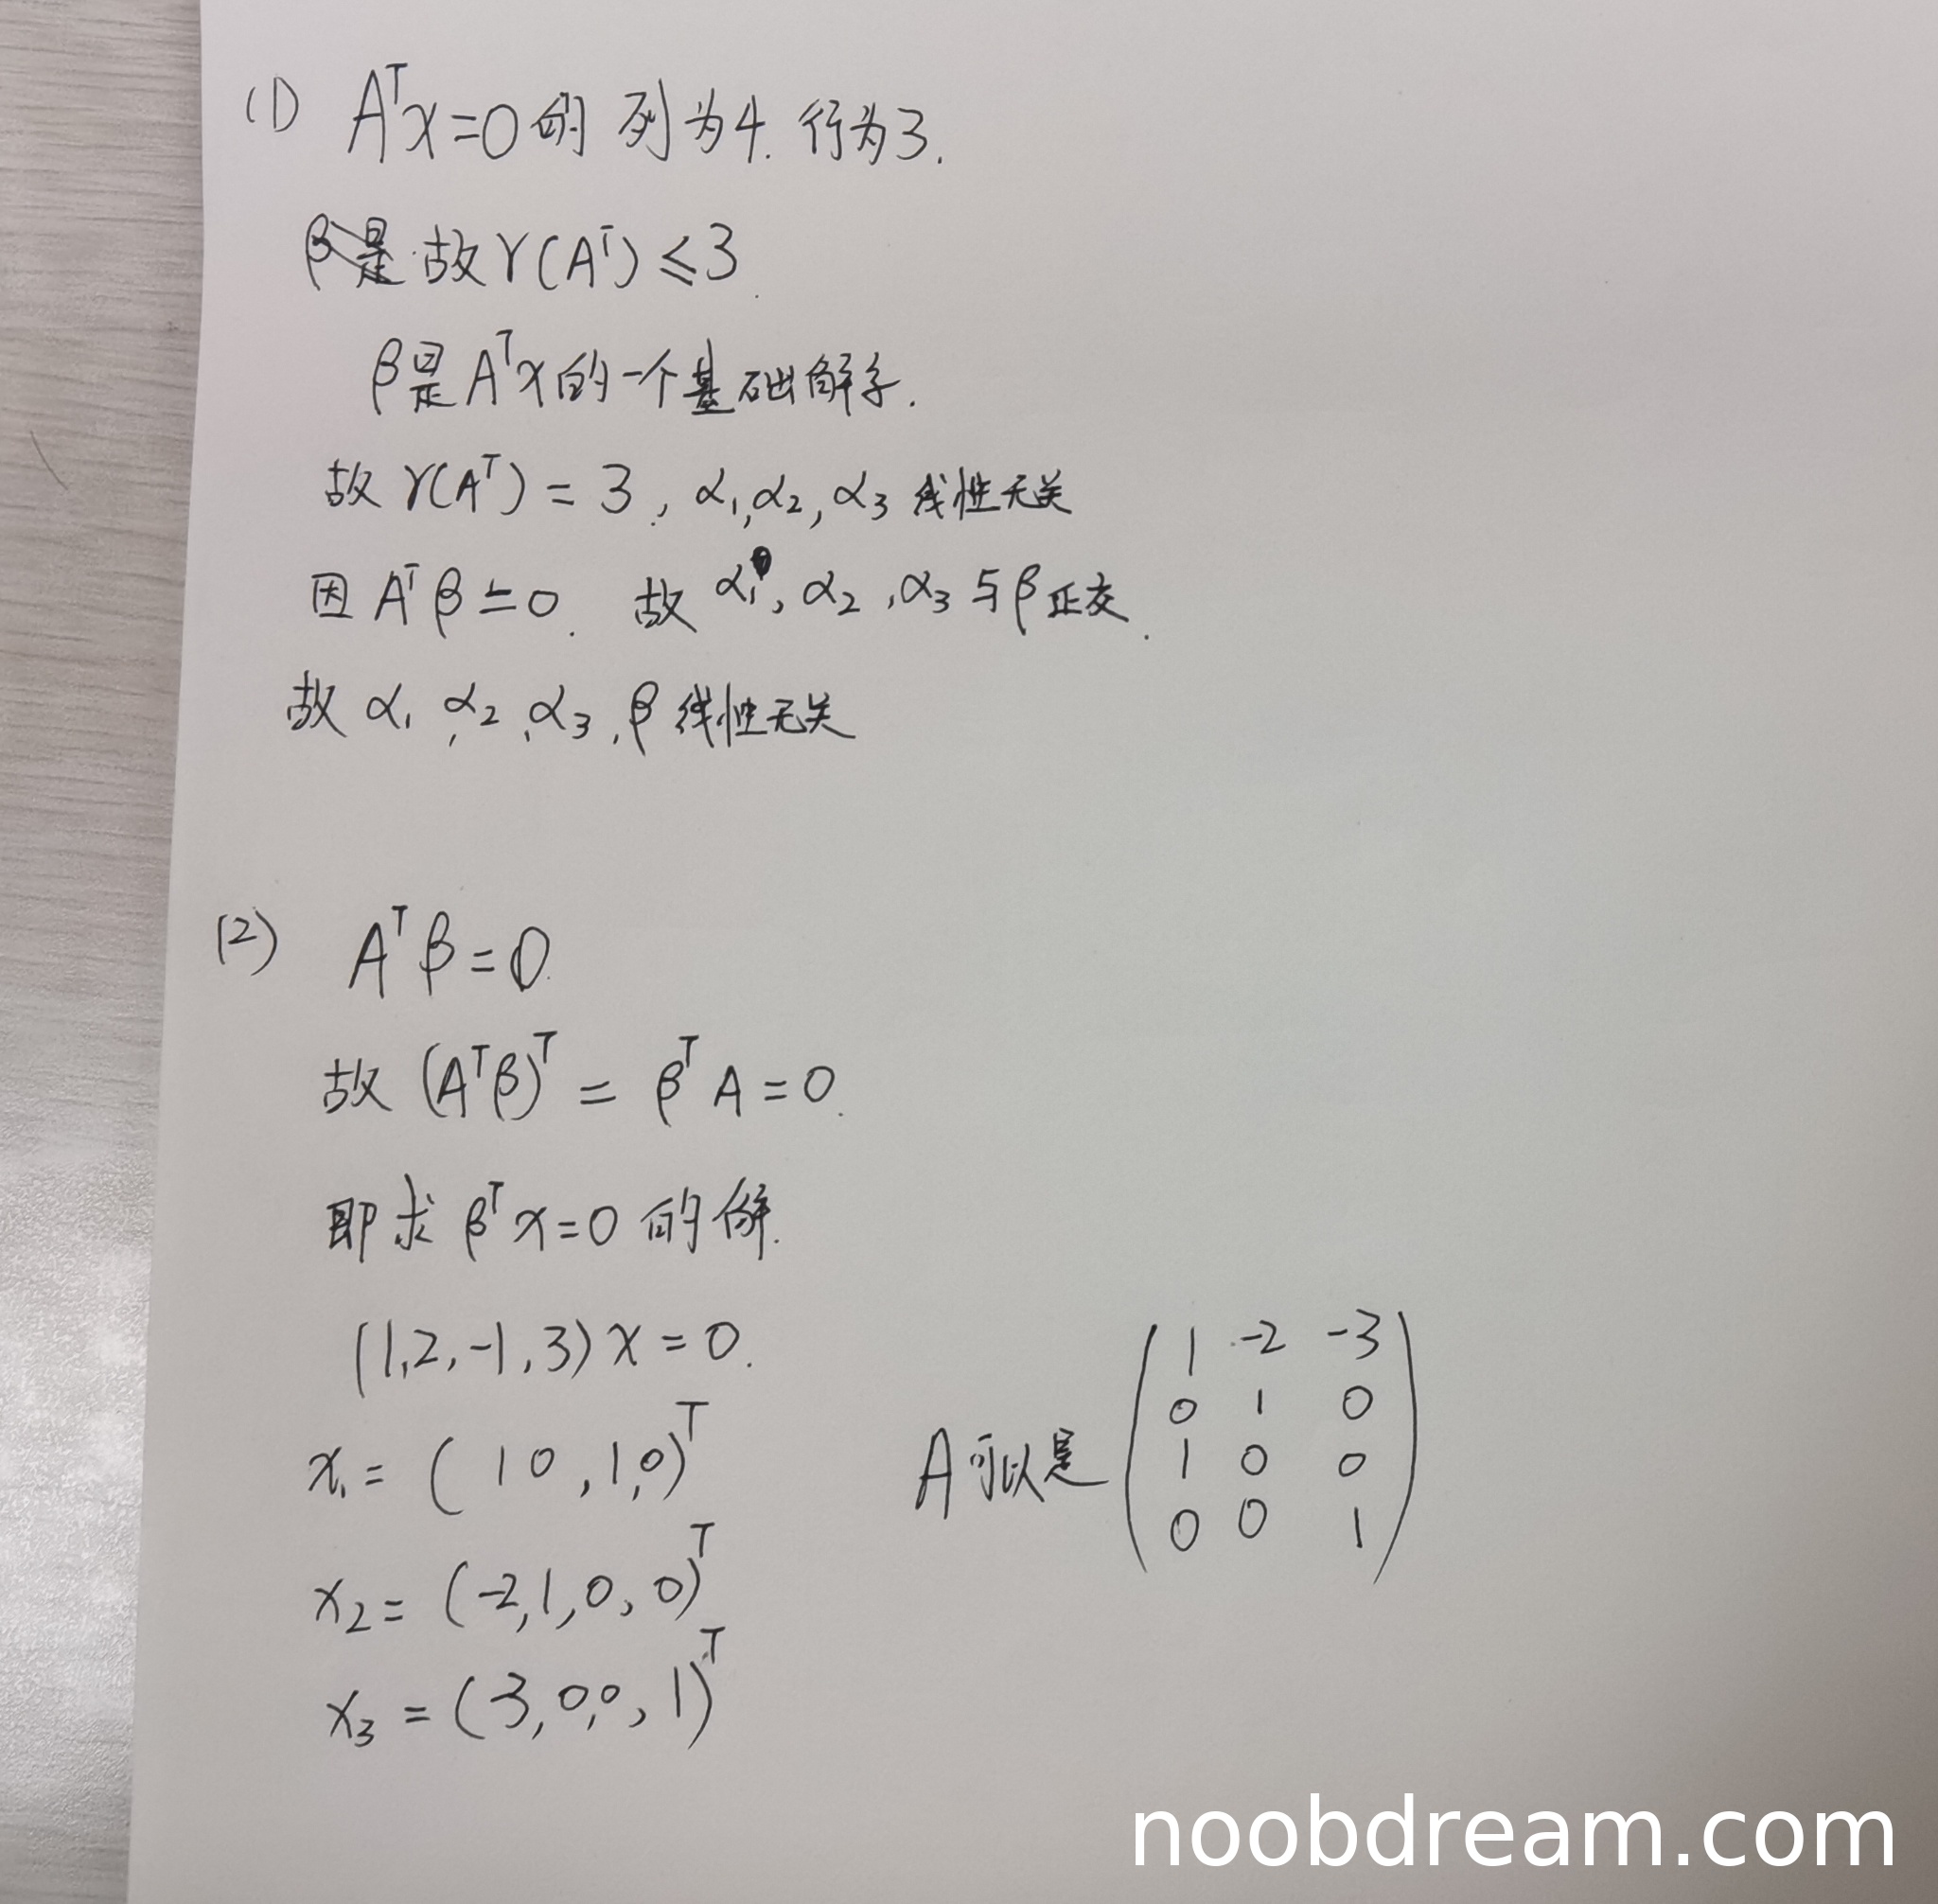 (1) Aᵀx=0的列为4.行为3.
故r(Aᵀ)≤3.
β是Aᵀx的一个基础解系.
故r(Aᵀ)=3, α₁,α₂,α₃线性无关
因Aᵀβ=0. 故α₁,α₂,α₃与β正交.
故α₁,α₂,α₃,β线性无关
(2) Aᵀβ=0.
故(Aᵀβ)ᵀ=βᵀA=0.
即求βᵀx=0的解.
(1,2,-1,3)x=0.
x₁=(1 0,1,0)ᵀ
x₂=(-2,1,0,0)ᵀ
x₃=(-3,0,0,1)ᵀ
A可以是
1 -2 -3
0 1 0
1 0 0
0 0 1
noobdream.com